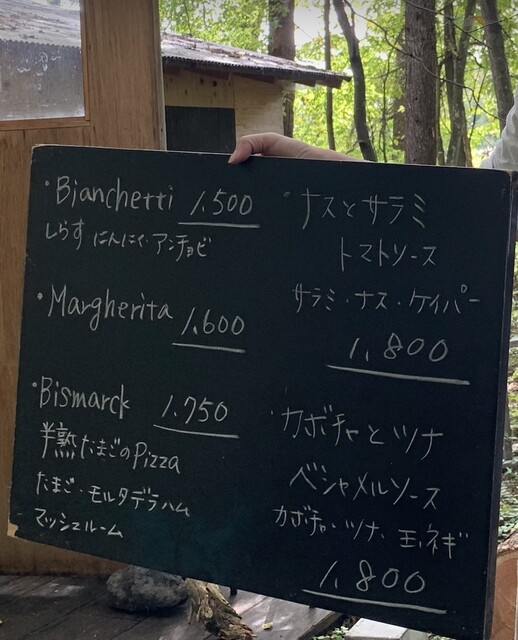 ・Bianchetti 1,500
しらす にんにく・アンチョビ
・Margherita 1,600
・Bismarck 1,750
半熟たまごのPizza
たまご・モルタデラハム
マッシュルーム
・ナスとサラミ
トマトソース
サラミ・ナス・ケイパー
1,800
・カボチャとツナ
ベシャメルソース
カボチャ・ツナ、玉ネギ
1,800